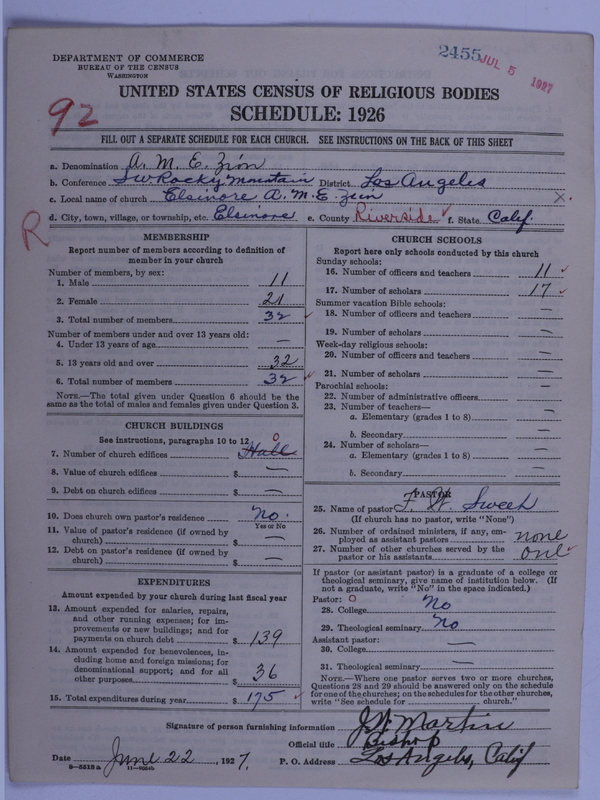 DEPARTMENT OF COMMERCE
BUREAU OF THE CENSUS
WASHINGTON
2455 JUL 5 1927
UNITED STATES CENSUS OF RELIGIOUS BODIES
SCHEDULE: 1926
92
FILL OUT A SEPARATE SCHEDULE FOR EACH CHURCH. SEE INSTRUCTIONS ON THE BACK OF THIS SHEET
a. Denomination A. M. E. Zion
b. Conference SW Rocky Mountain District Los Angeles
c. Local name of church Elsinore A. M. E. Zion X.
d. City, town, village, or township, etc. Elsinore e. County Riverside ✓ f. State Calif.
R
MEMBERSHIP
Report number of members according to definition of member in your church
Number of members, by sex:
1. Male 11
2. Female 21
3. Total number of members 32 ✓
Number of members under and over 13 years old:
4. Under 13 years of age —
5. 13 years old and over 32
6. Total number of members 32 ✓
NOTE.—The total given under Question 6 should be the same as the total of males and females given under Question 3.
CHURCH BUILDINGS
See instructions, paragraphs 10 to 12
7. Number of church edifices Hall 0
8. Value of church edifices $ —
9. Debt on church edifices $ —
10. Does church own pastor's residence No.
Yes or No
11. Value of pastor's residence (if owned by church) $ —
12. Debt on pastor's residence (if owned by church) $ —
EXPENDITURES
Amount expended by your church during last fiscal year
13. Amount expended for salaries, repairs, and other running expenses; for improvements or new buildings; and for payments on church debt $ 139
14. Amount expended for benevolences, including home and foreign missions; for denominational support; and for all other purposes $ 36
15. Total expenditures during year $ 175 ✓
CHURCH SCHOOLS
Report here only schools conducted by this church
Sunday schools:
16. Number of officers and teachers 11 ✓
17. Number of scholars 17 ✓
Summer vacation Bible schools:
18. Number of officers and teachers —
19. Number of scholars —
Week-day religious schools:
20. Number of officers and teachers —
21. Number of scholars —
Parochial schools:
22. Number of administrative officers —
23. Number of teachers—
a. Elementary (grades 1 to 8) —
b. Secondary —
24. Number of scholars—
a. Elementary (grades 1 to 8) —
b. Secondary —
PASTOR
25. Name of pastor F. W. Sweet
(If church has no pastor, write "None")
26. Number of ordained ministers, if any, employed as assistant pastors none
27. Number of other churches served by the pastor or his assistants one ✓
If pastor (or assistant pastor) is a graduate of a college or theological seminary, give name of institution below. (If not a graduate, write "No" in the space indicated.)
Pastor: 0
28. College No
29. Theological seminary No
Assistant pastor:
30. College —
31. Theological seminary —
NOTE.—Where one pastor serves two or more churches, Questions 28 and 29 should be answered only on the schedule for one of the churches; on the schedules for the other churches, write "See schedule for ____ church."
Signature of person furnishing information J. W. Martin
Official title Bishop
Date June 22, 1927. P. O. Address Los Angeles, Calif